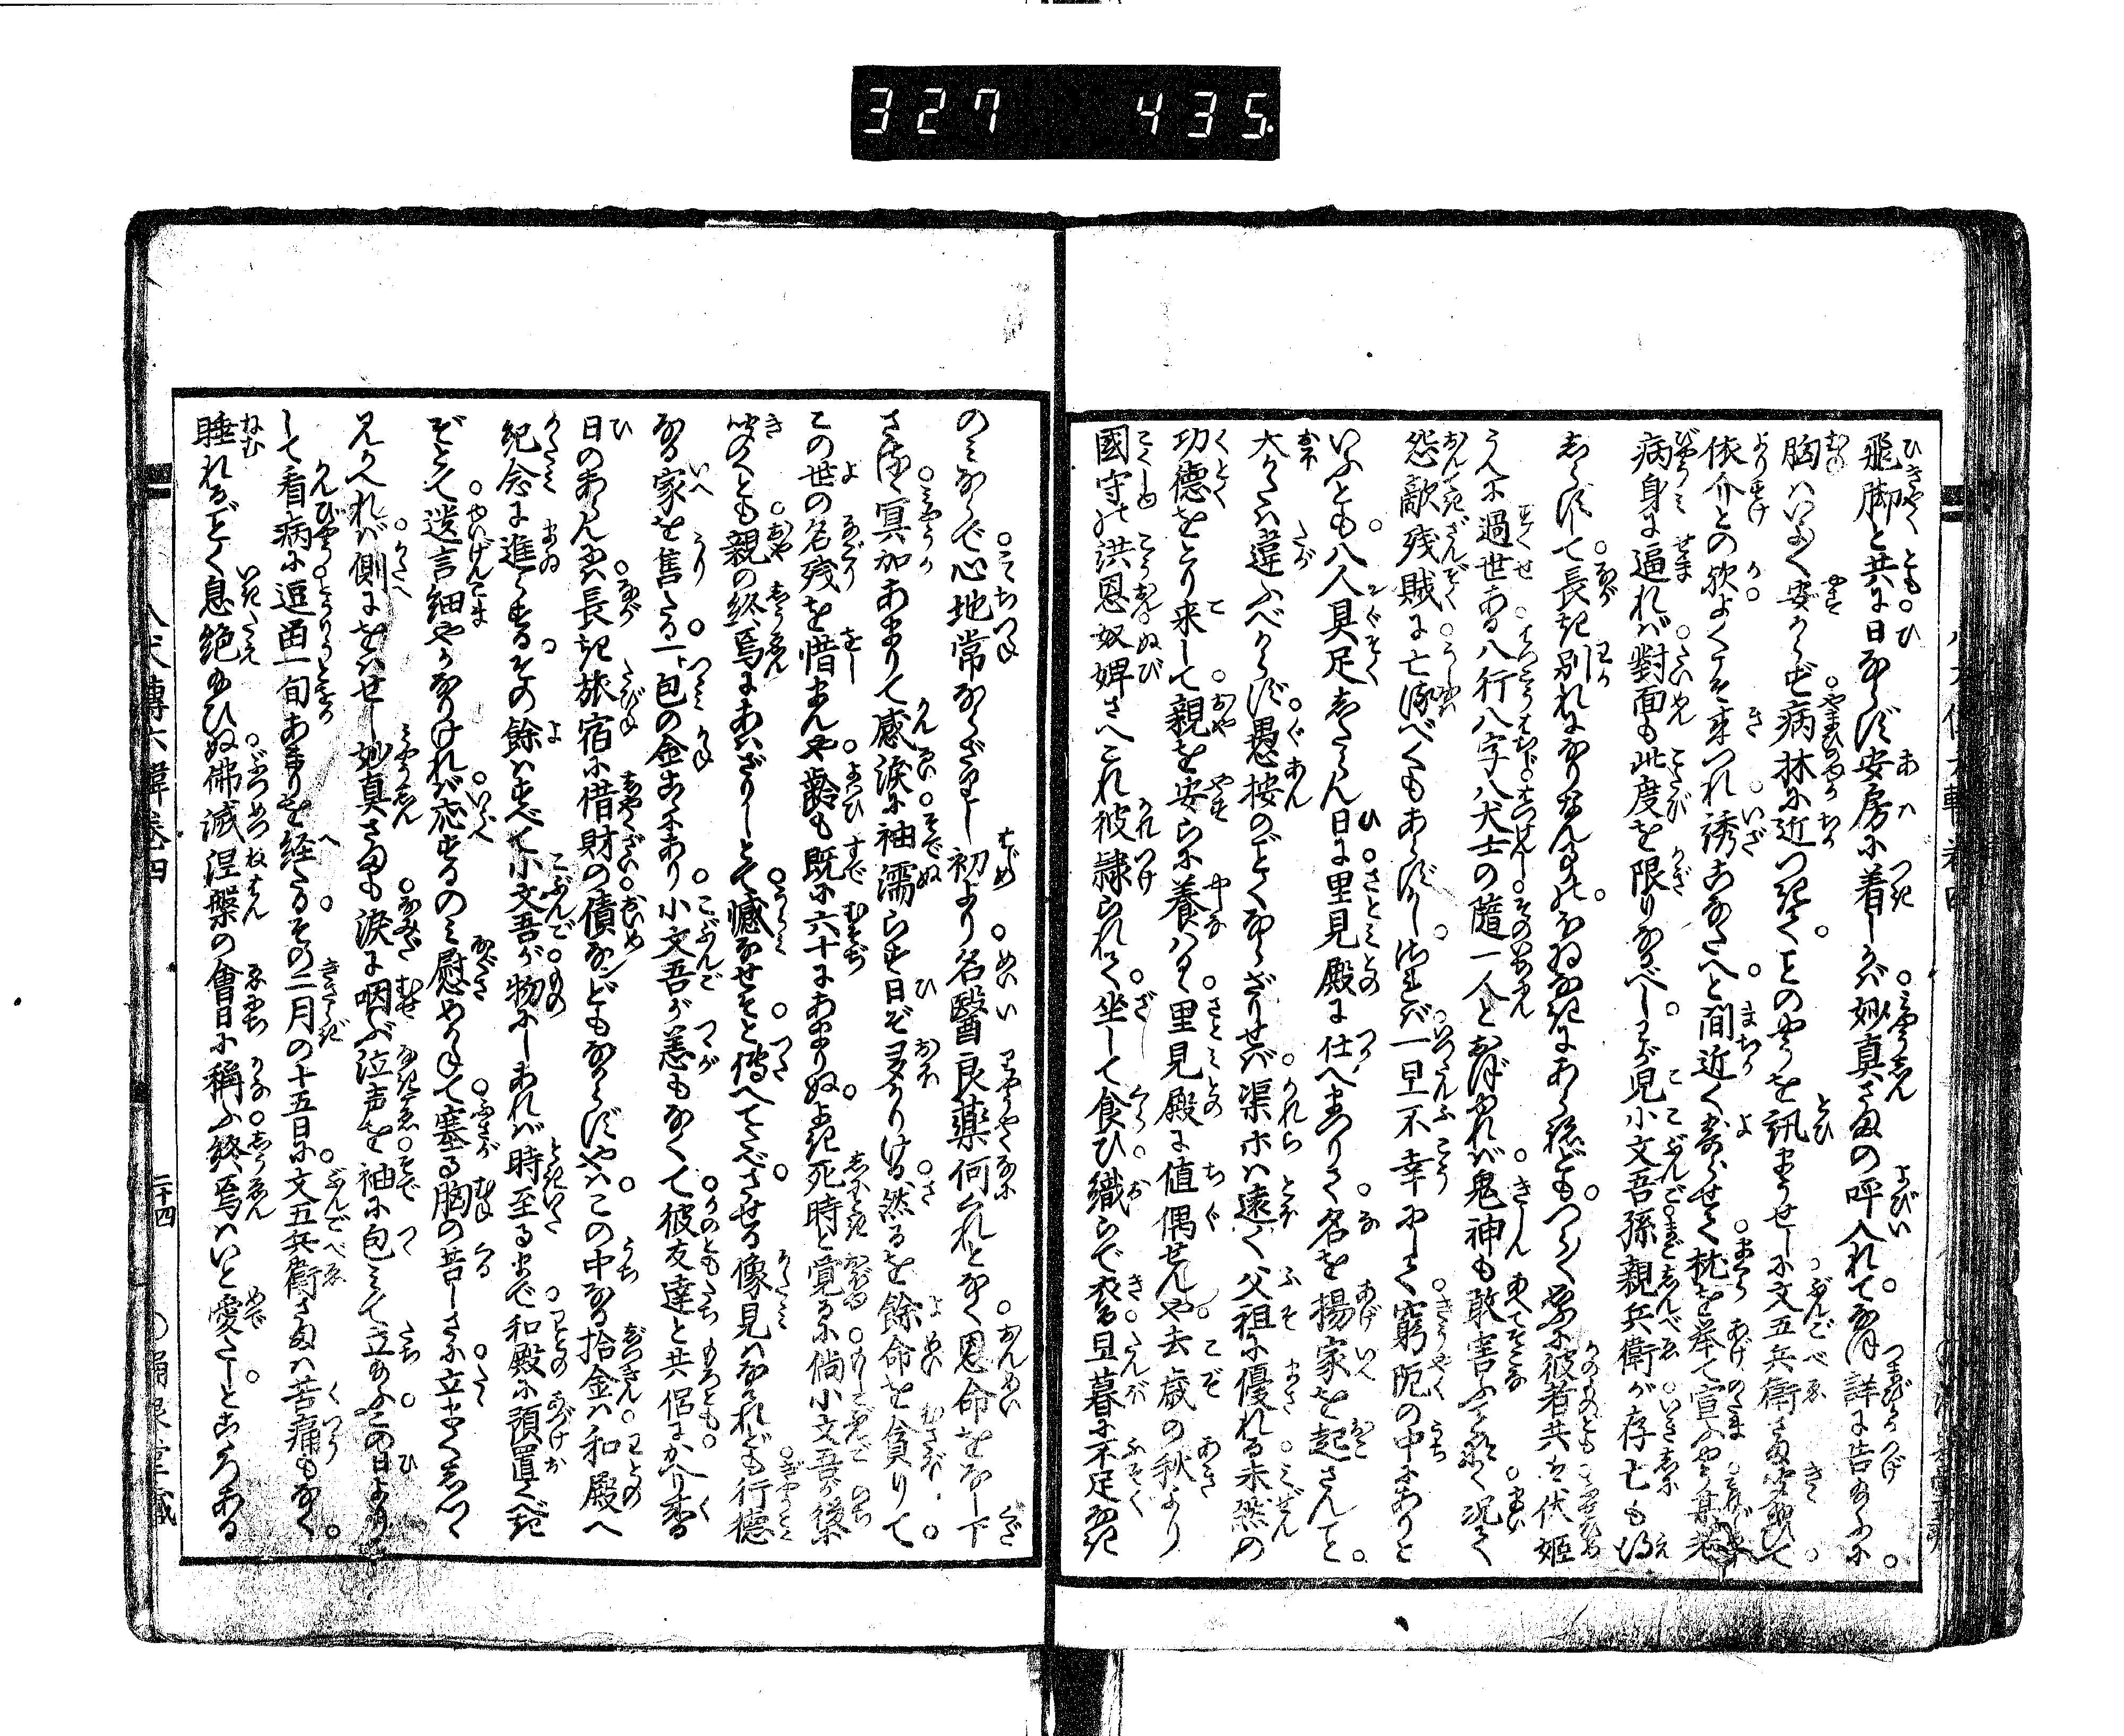 327 435
飛脚と共に日ならず安房に着しかば妙真さまの呼入れてなほ詳に告給ふに
胸はいよく安からず病牀に近つきてことのやうを訊まうせしに文五兵衛さま聞給ひて
依介との歟よくこそ来つれ誘あなたへと間近くよらせて枕を挙て宣ふやう某老
病身に逼れば對面も此度を限りなるべしわが児小文吾孫親兵衛が存亡も得
しらずして長き別れになりなん事のほゐなきにあらねどもつらく思ふに彼者共は伏姫
うへに過世ある八行八字八犬士の隨一人とおぼゆれば鬼神も敢害ふことなく况て
怨敵残賊に亡さるべくもあらずしからば一旦不幸にして窮阨の中にありと
いふとも八人具足したらん日に里見殿に仕へまつりて名を揚家を起さんこと
大かたは違ふべからず愚按のごとくならざりせば渠等は遠く父祖に優れる未然の
功徳をとり来して親を安らに養はく里見殿に値偶せんや去歳の秋より
國守の洪恩奴婢さへこれ彼隷られて坐して食ひ織らで衣る旦暮に不足なき
のみならで心地常ならざりし初より名醫良薬何くれとなく恩命をなし下
さるゝ冥加あまりて感涙に袖濡らす日ぞ多かりける然るを餘命を貪りて
この世の名残を惜まんや齢も既に六十にあまりぬよき死時と覚るに倘小文吾が後に
聞くとも親の終焉にあはざりしとて憾なせそと傳へてたべさせる像見はなけれども行徳
なる家を售たる一包の金こゝにあり小文吾が恙もなくて彼友達と共侶にかへり来る
日のあらんには長き旅宿に借財の債などもなからずやはこの中なる拾金は和殿へ
紀念に進らするその餘はすべて小文吾が物にしあれば時至るまで和殿に預置くべき
ぞとて遺言細やかなりければ応するのみ慰めかねて塞る胸の苦しさに立まくしつゝ
見かへれば側にをはせし妙真さまも涙に咽ぶ泣声を袖に包みて立給ふこの日より
して看病に逗畄一旬あまりを経たるその二月の十五日に文五兵衛さまは苦痛もなく
睡れるごとく息絶給ひぬ佛滅涅槃の會日に稱ふ終焉はいと愛たしとこゝろある
八犬傳六輯巻四
二十四